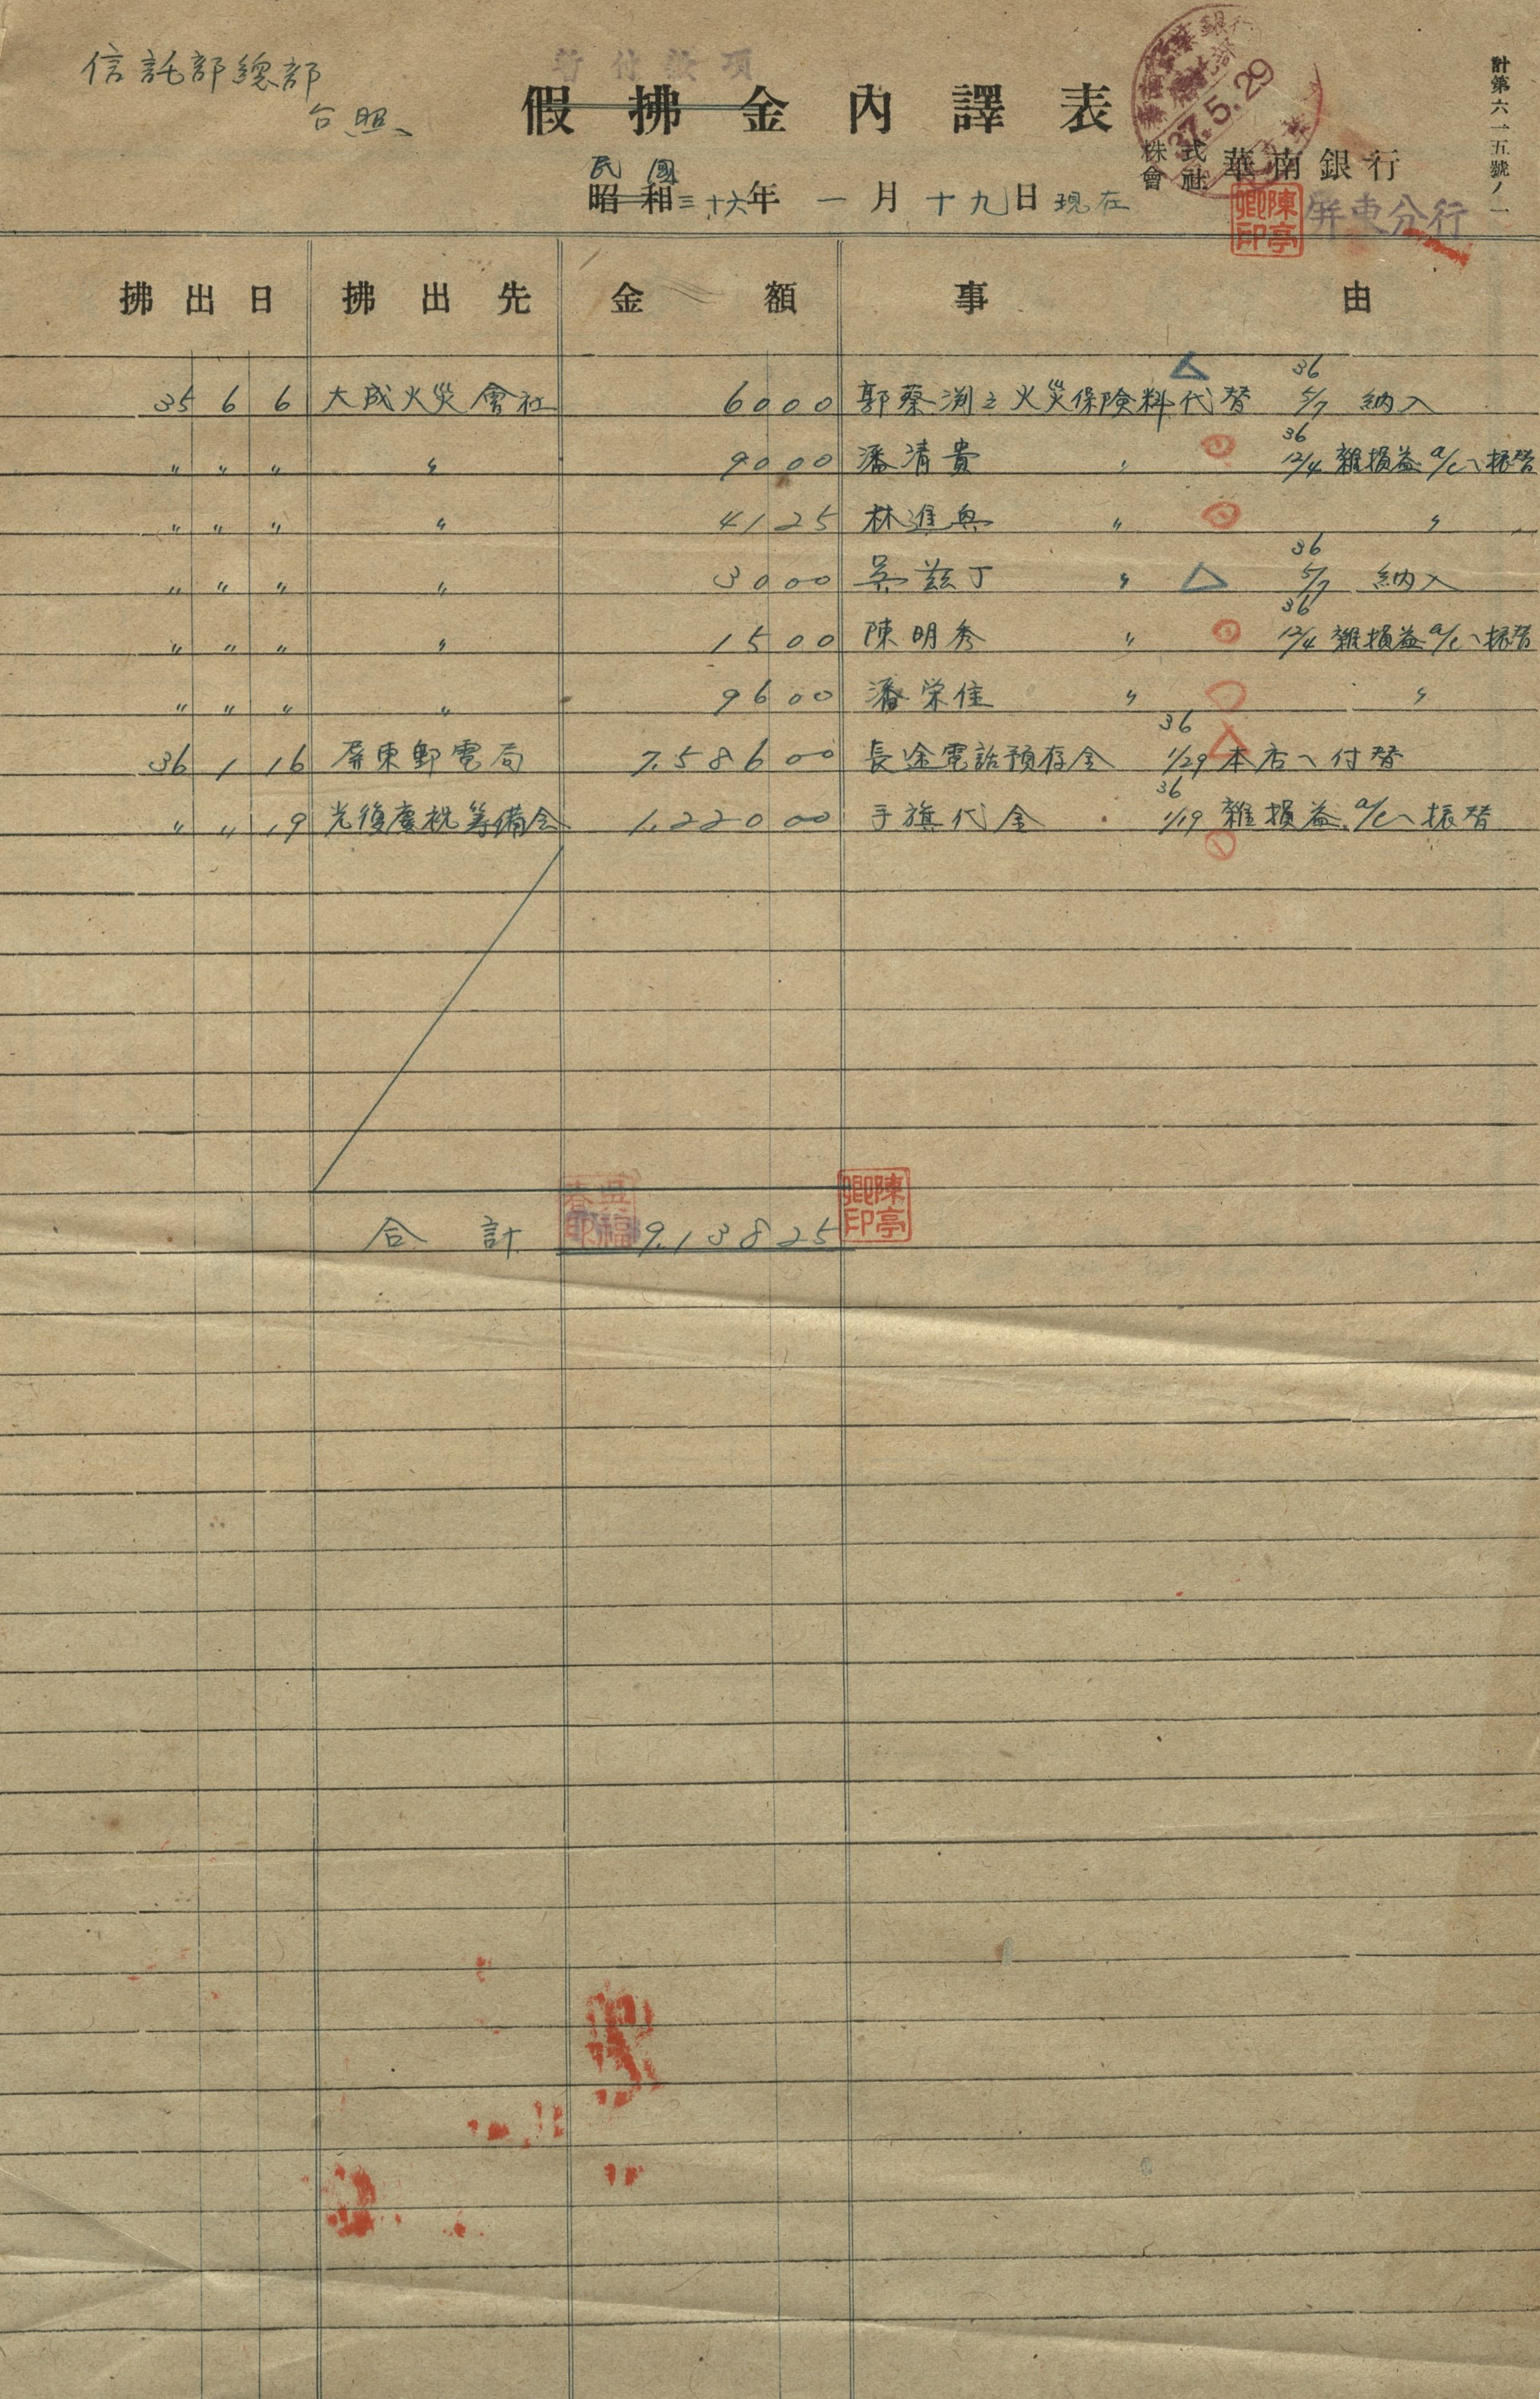 計第六一五號ノ一
信託部總部
台照
暫付款項
假拂金內譯表
37.5.29
株式會社 華南銀行
屏東分行
陳亭卿印
民國
昭和三十六年 一月十九日現在
拂出日 拂出先 金額 事由
35 6 6 大成火災會社 60 00 郭蔡渕之火災保險料代替 36 5/7 納入
〃 〃 〃 〃 90 00 潘清貴 〃 36 12/4 雜損益a/cヘ振替
〃 〃 〃 〃 41 25 林進興 〃 〃
〃 〃 〃 〃 30 00 吳茲丁 〃 36 5/7 納入
〃 〃 〃 〃 15 00 陳明秀 〃 36 12/4 雜損益a/cヘ振替
〃 〃 〃 〃 96 00 潘荣住 〃 〃
36 1 16 屏東郵電局 7.586 00 長途電話預存金 36 1/29 本店ヘ付替
〃 〃 19 光復慶祝籌備会 1.220 00 手旗代金 36 1/19 雜損益a/cヘ振替
合計 9.138 25
陳亭卿印